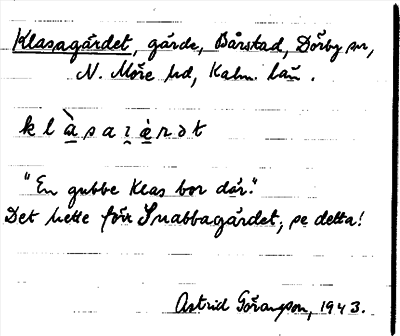 Klasagärdet, gärde, Bårstad, Dörby sn,
N. Möre hd, Kalm. län.
"En gubbe Klas bor där."
Det hette förr Snabbagärdet, se detta!
Astrid Göransson, 1943.